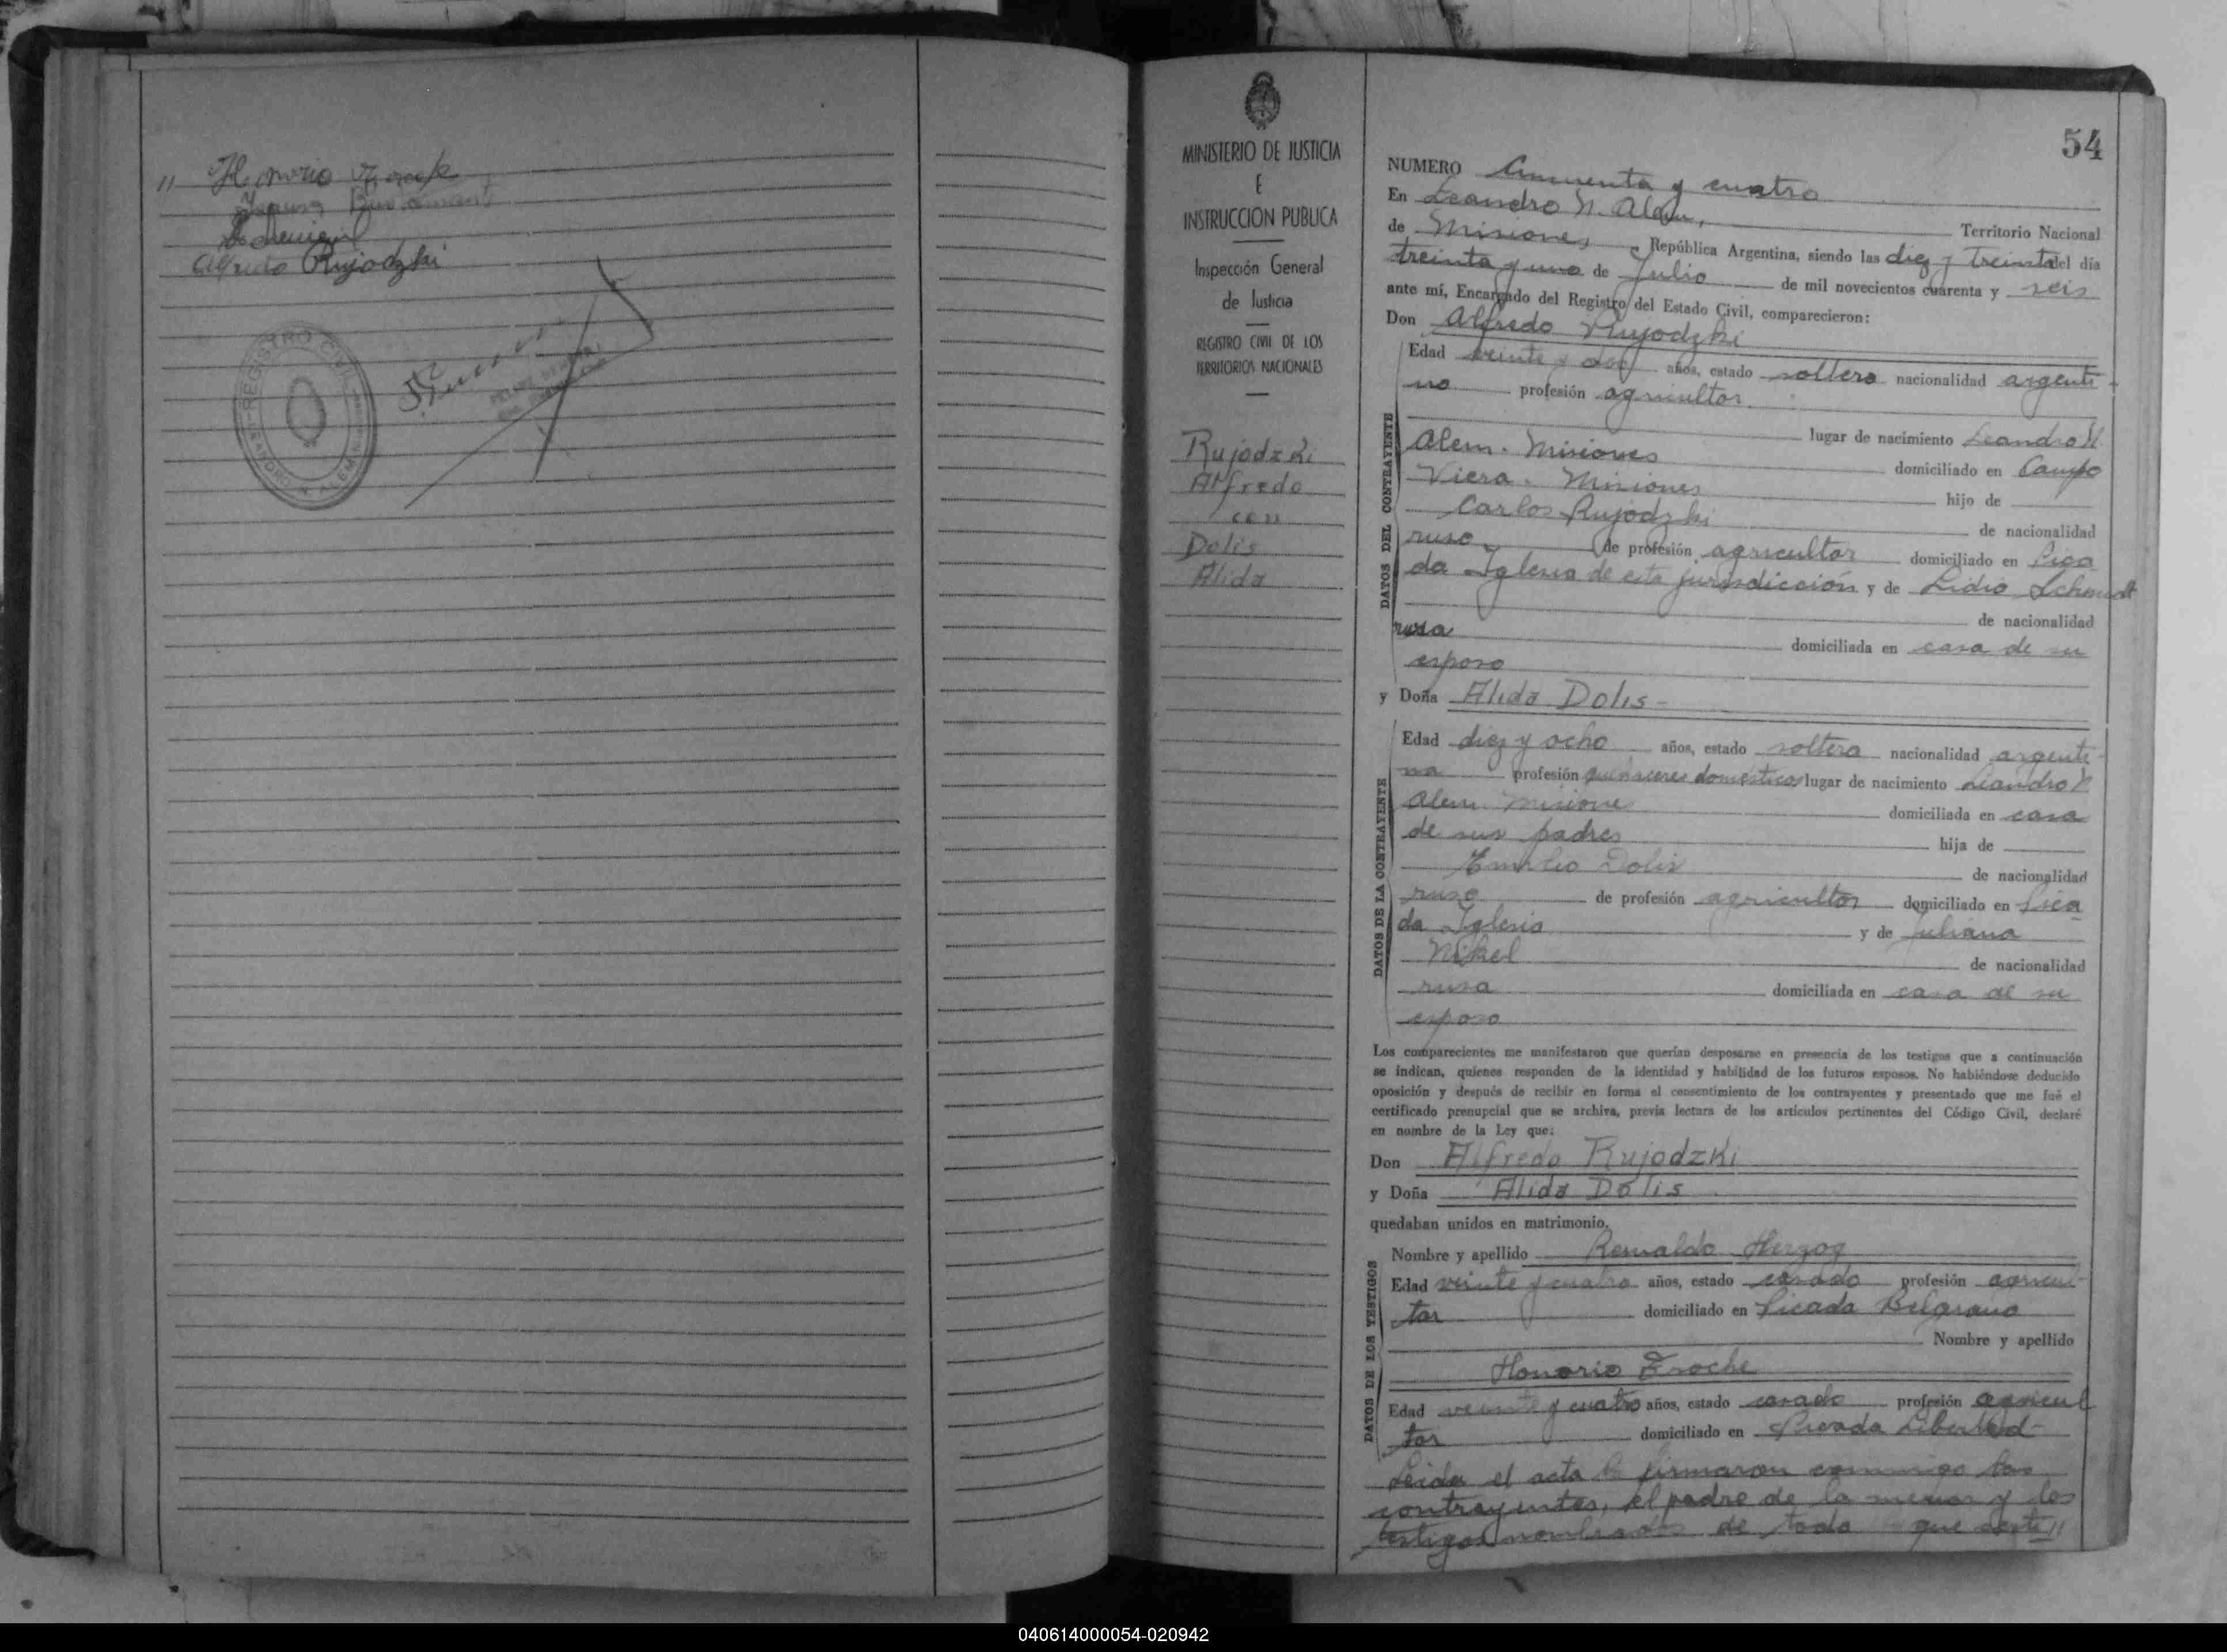 11 Honorio
Alfredo Rujodzki
REGISTRO CIVIL
LEANDRO N. ALEM
MINISTERIO DE JUSTICIA
E
INSTRUCCION PUBLICA
Inspección General
de Justicia
REGISTRO CIVIL DE LOS
TERRITORIOS NACIONALES
Rujodzki
Alfredo
con
Dolis
Alida
54
NUMERO Cincuenta y cuatro
En Leandro N. Alem, Territorio Nacional
de Misiones, República Argentina, siendo las diez y treinta del día
treinta y uno de Julio de mil novecientos cuarenta y seis
ante mí, Encargado del Registro del Estado Civil, comparecieron:
Don Alfredo Rujodzki
DATOS DEL CONTRAYENTE
Edad veinte y dos años, estado soltero nacionalidad argenti-
no profesión agricultor.
lugar de nacimiento Leandro N.
Alem. Misiones domiciliado en Campo
Viera. Misiones hijo de
Carlos Rujodzki de nacionalidad
ruso de profesión agricultor domiciliado en Pica
da Iglesia de esta jurisdicción y de Lidia Schmidt
de nacionalidad
rusa domiciliada en casa de su
esposo
y Doña Alida Dolis-
DATOS DE LA CONTRAYENTE
Edad diez y ocho años, estado soltera nacionalidad argenti-
na profesión quehaceres domésticos lugar de nacimiento Leandro N.
Alem. Misiones domiciliada en casa
de sus padres hija de
Emilio Dolis de nacionalidad
ruso de profesión agricultor domiciliado en Pica
da Iglesia y de Juliana
Nikel de nacionalidad
rusa domiciliada en casa de su
esposo
Los comparecientes me manifestaron que querían desposarse en presencia de los testigos que a continuación
se indican, quienes responden de la identidad y habilidad de los futuros esposos. No habiéndose deducido
oposición y después de recibir en forma el consentimiento de los contrayentes y presentado que me fué el
certificado prenupcial que se archiva, previa lectura de los artículos pertinentes del Código Civil, declaré
en nombre de la Ley que:
Don Alfredo Rujodzki
y Doña Alida Dolis
quedaban unidos en matrimonio.
DATOS DE LOS TESTIGOS
Nombre y apellido Renaldo Herzog
Edad veinte y cuatro años, estado casado profesión agricul-
tor domiciliado en Picada Belgrano
Nombre y apellido
Honorio Broche
Edad veinte y cuatro años, estado casado profesión agricul
tor domiciliado en Picada Libertad-
Leida el acta la firmaron conmigo los
contrayentes, el padre de la menor y los
testigos nombrados de todo que certi 11
040614000054-020942